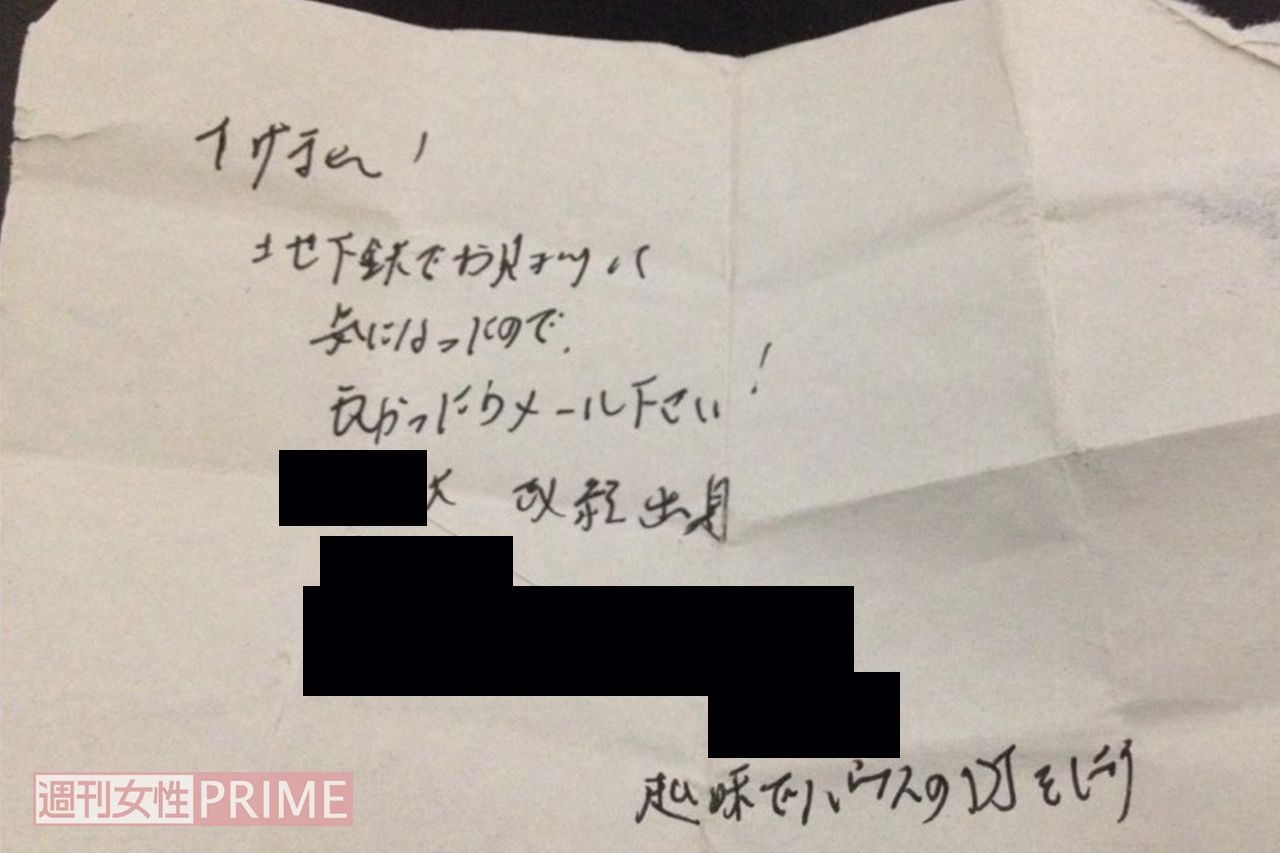 地下鉄でお見かけして
気になったので、
良かったらメール下さい!
大 政経出身
趣味でハウスのDJをしてます
週刊女性PRIME